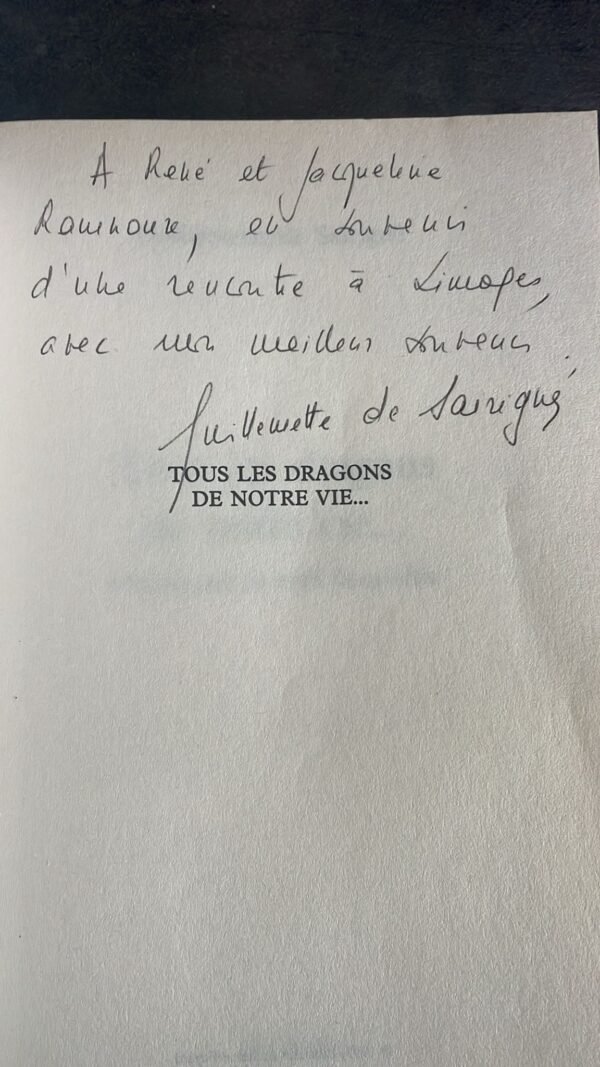 A René et Jacqueline
Ramnoux, en souvenir
d'une rencontre à Limoges,
avec mon meilleur souvenir.
Guillemette de Sairigné
TOUS LES DRAGONS
DE NOTRE VIE...